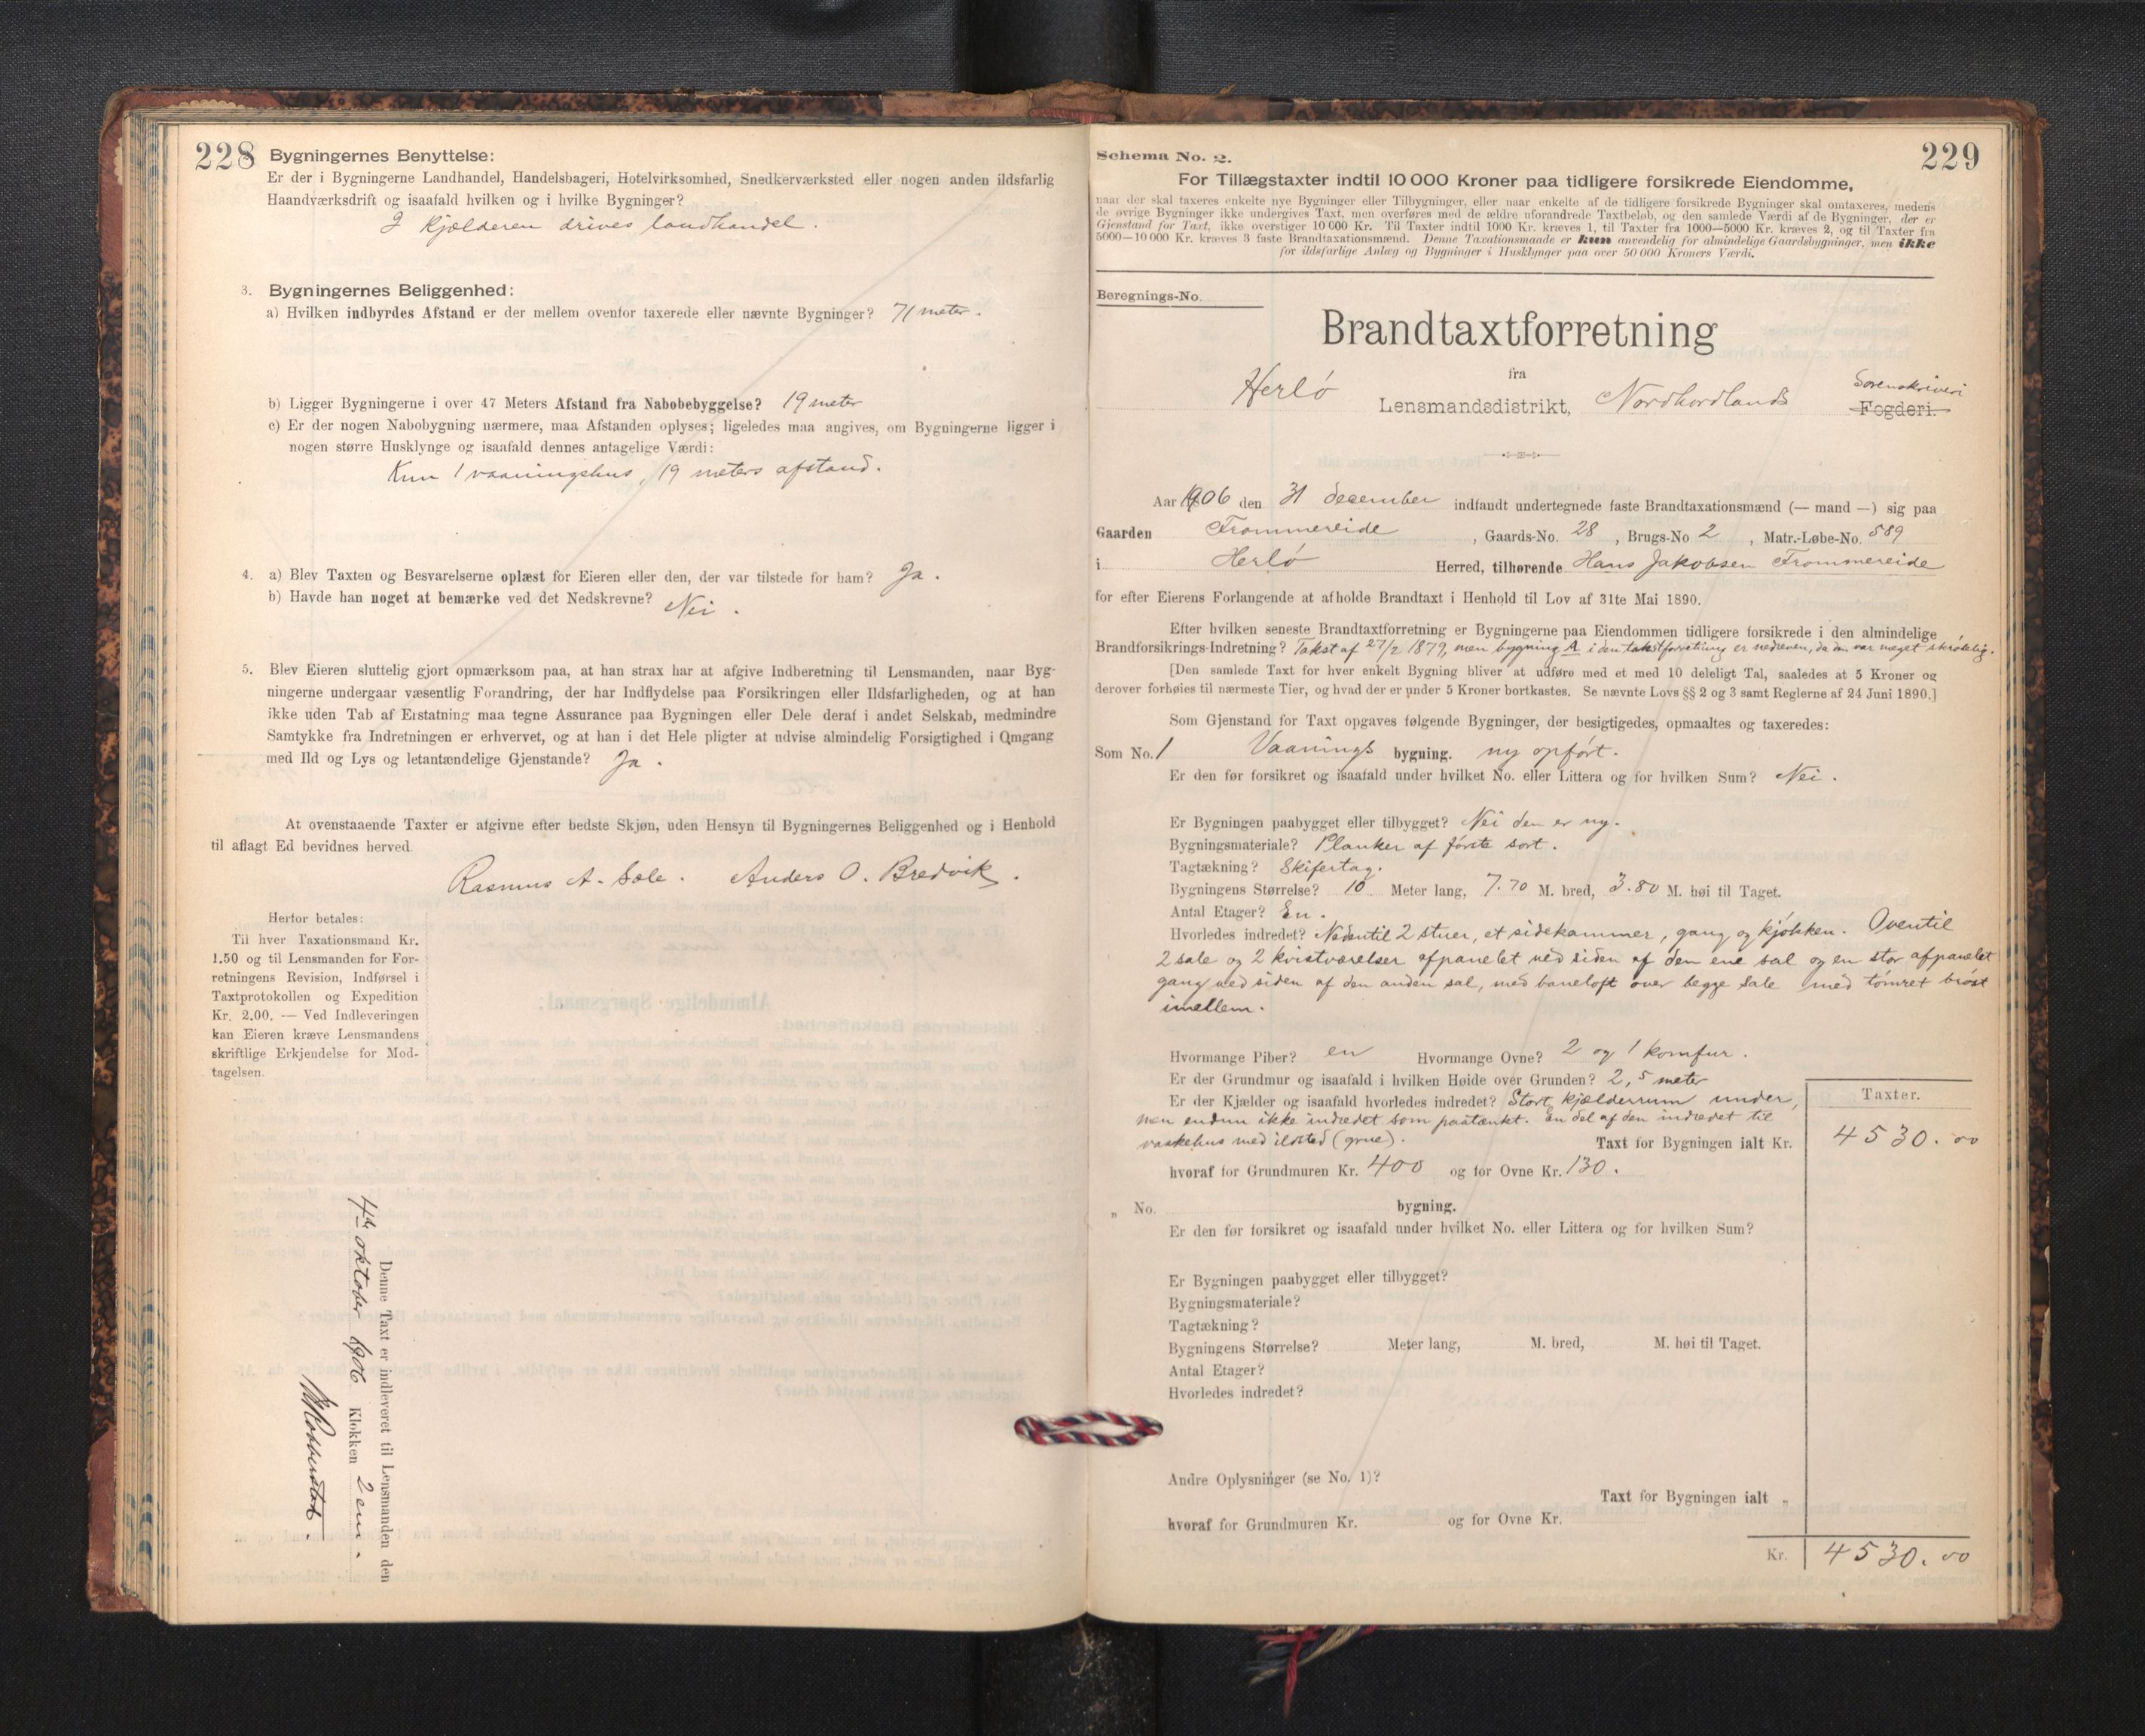 228
Bygningernes Benyttelse:
Er der i Bygningerne Landhandel, Handelsbageri, Hotelvirksomhed, Snedkerværksted eller nogen anden ildsfarlig
Haandværksdrift og isaafald hvilken og i hvilke Bygninger?
I kjælderen drives landhandel.
3. Bygningernes Beliggenhed:
a) Hvilken indbyrdes Afstand er der mellem ovenfor taxerede eller nævnte Bygninger? 71 meter.
b) Ligger Bygningerne i over 47 Meters Afstand fra Nabobebyggelse? 19 meter
c) Er der nogen Nabobygning nærmere, maa Afstanden oplyses; ligeledes maa angives, om Bygningerne ligger i
nogen større Husklynge og isaafald dennes antagelige Værdi:
Kun 1 vaaningshus, 19 meters afstand.
4. a) Blev Taxten og Besvarelserne oplæst for Eieren eller den, der var tilstede for ham? Ja.
b) Havde han noget at bemærke ved det Nedskrevne? Nei.
5. Blev Eieren sluttelig gjort opmærksom paa, at han strax har at afgive Indberetning til Lensmanden, naar Byg-
ningerne undergaar væsentlig Forandring, der har Indflydelse paa Forsikringen eller Ildsfarligheden, og at han
ikke uden Tab af Erstatning maa tegne Assurance paa Bygningen eller Dele deraf i andet Selskab, medmindre
Samtykke fra Indretningen er erhvervet, og at han i det Hele pligter at udvise almindelig Forsigtighed i Omgang
med Ild og Lys og letantændelige Gjenstande? Ja.
At ovenstaaende Taxter er afgivne efter bedste Skjøn, uden Hensyn til Bygningernes Beliggenhed og i Henhold
til aflagt Ed bevidnes herved
Rasmus A. Sole. Anders O. Bredvik.
Herfor betales:
Til hver Taxationsmand Kr.
1.50 og til Lensmanden for For-
retningens Revision, Indførsel i
Taxtprotokollen og Expedition
Kr. 2.00. — Ved Indleveringen
kan Eieren kræve Lensmandens
skriftlige Erkjendelse for Mod-
tagelsen.
Denne Taxt er indleveret til Lensmanden den
4de oktober 1906 Klokken 2 em.
229
Schema No. 2.
For Tillægstaxter indtil 10 000 Kroner paa tidligere forsikrede Eiendomme,
naar der skal taxeres enkelte nye Bygninger eller Tilbygninger, eller naar enkelte af de tidligere forsikrede Bygninger skal omtaxeres, medens
de øvrige Bygninger ikke undergives Taxt, men overføres med de ældre uforandrede Taxtbeløb, og den samlede Værdi af de Bygninger, der er
Gjenstand for Taxt, ikke overstiger 10 000 Kr. Til Taxter indtil 1000 Kr. kræves 1, til Taxter fra 1000—5000 Kr. kræves 2, og til Taxter fra
5000—10 000 Kr. kræves 3 faste Brandtaxationsmænd. Denne Taxationsmaade er kun anvendelig for almindelige Gaardsbygninger, men ikke
for ildsfarlige Anlæg og Bygninger i Husklynger paa over 50 000 Kroners Værdi.
Beregnings-No.
Brandtaxtforretning
fra
Herlø Lensmandsdistrikt, Nordhordlands Sorenskriveri Fogderi.
Aar 1906 den 31 december indfandt undertegnede faste Brandtaxationsmænd (— mand —) sig paa
Gaarden Frommereide, Gaards-No. 28, Brugs-No 2, Matr.-Løbe-No. 589
i Herlø Herred, tilhørende Hans Jakobsen Frommereide
for efter Eierens Forlangende at afholde Brandtaxt i Henhold til Lov af 31te Mai 1890.
Efter hvilken seneste Brandtaxtforretning er Bygningerne paa Eiendommen tidligere forsikrede i den almindelige
Brandforsikrings-Indretning? Takst af 27/2 1879, men bygning A i den takstforretning er nedreven, da den var meget skrøbelig.
[Den samlede Taxt for hver enkelt Bygning bliver at udføre med et med 10 deleligt Tal, saaledes at 5 Kroner og
derover forhøies til nærmeste Tier, og hvad der er under 5 Kroner bortkastes. Se nævnte Lovs §§ 2 og 3 samt Reglerne af 24 Juni 1890.]
Som Gjenstand for Taxt opgaves følgende Bygninger, der besigtigedes, opmaaltes og taxeredes:
Som No. 1 Vaanings bygning. ny opført.
Er den før forsikret og isaafald under hvilket No. eller Littera og for hvilken Sum? Nei.
Er Bygningen paabygget eller tilbygget? Nei den er ny.
Bygningsmateriale? Planker af første sort.
Tagtækning? Skifertag.
Bygningens Størrelse? 10 Meter lang, 7.70 M. bred, 3.80 M. høi til Taget.
Antal Etager? En.
Hvorledes indredet? Nedentil 2 stuer, et sidekammer, gang og kjøkken. Oventil
2 sale og 2 kvistværelser afpanelet ved siden af den ene sal og en stor afpanelet
gang ved siden af den anden sal, med baneloft over begge sale med tømret brøst
imellem.
Hvormange Piber? en Hvormange Ovne? 2 og 1 komfur.
Er der Grundmur og isaafald i hvilken Høide over Grunden? 2,5 meter
Er der Kjælder og isaafald hvorledes indredet? Stort kjælderrum under,
men endnu ikke indredet som paatænkt. En del af den indredet til
vaskehus med ildsted (grue).
Taxter.
Taxt for Bygningen ialt Kr. 4530.00
hvoraf for Grundmuren Kr. 400 og for Ovne Kr. 130.
„ No. bygning.
Er den før forsikret og isaafald under hvilket No. eller Littera og for hvilken Sum?
Er Bygningen paabygget eller tilbygget?
Bygningsmateriale?
Tagtækning?
Bygningens Størrelse? Meter lang, M. bred, M. høi til Taget.
Antal Etager?
Hvorledes indredet?
Andre Oplysninger (se No. 1)?
Taxt for Bygningen ialt „
hvoraf for Grundmuren Kr. og for Ovne Kr.
Kr. 4530.00